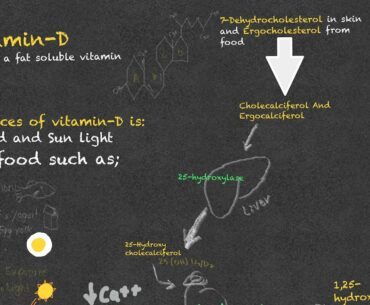 amin-D
a fat soluble vitamin
ces of vitamin-D is:
d and Sun light
food such as;
7-Dehydrocholesterol in skin
and Ergocholesterol from
food
Cholecalciferol And
Ergocalciferol
25-hydroxylase
Liver
25-Hydroxy
cholecalciferol
Ca++
1,25-
hydrox